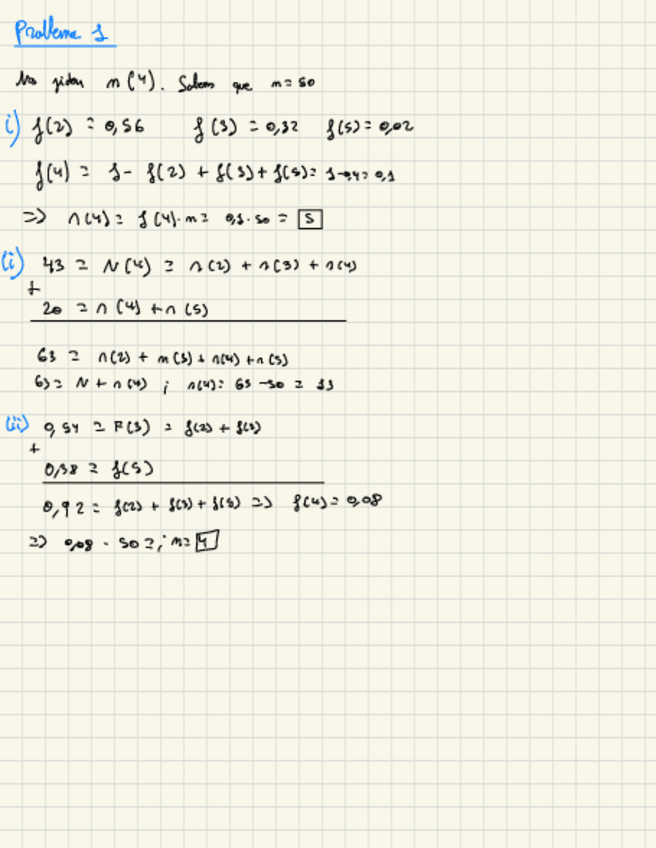 Problema 1
Nos piden n(4). Sabemos que n=50
i) f(2) = 0,56 f(3) = 0,32 f(5) = 0,02
f(4) = 1- f(2) + f(3) + f(5) = 1-0,9 = 0,1
=> n(4) = f(4)·n = 0,1·50 = 5
ii) 43 = N(4) = n(2) + n(3) + n(4)
+
20 = n(4) + n(5)
63 = n(2) + n(3) + n(4) + n(5)
63 = N + n(4) ; n(4) = 63 -50 = 13
iii) 0,54 = F(3) = f(2) + f(3)
+
0,38 = f(5)
0,92 = f(2) + f(3) + f(5) => f(4) = 0,08
=> 0,08 · 50 = ; n = 4